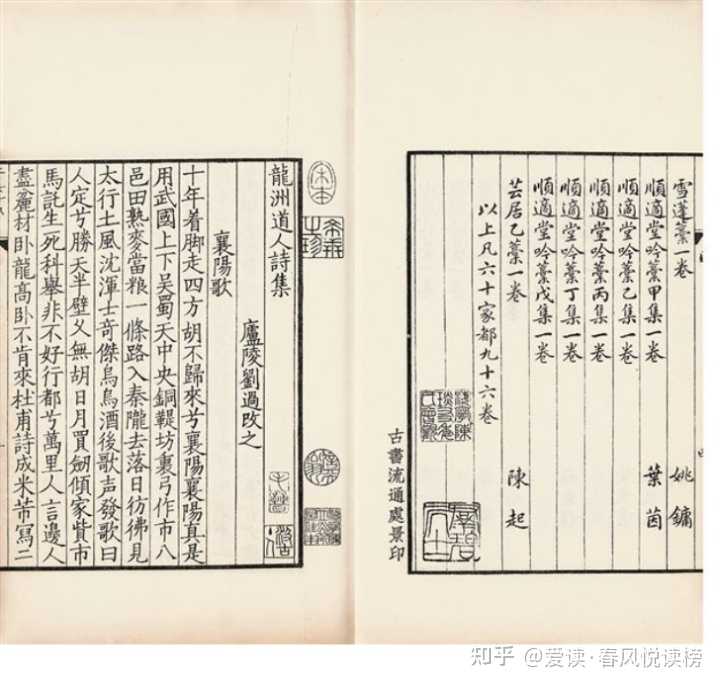 雪蓬藳一卷 姚鏞
順適堂吟藳甲集一卷 葉茵
順適堂吟藳乙集一卷
順適堂吟藳丙集一卷
順適堂吟藳丁集一卷
順適堂吟藳戊集一卷
芸居乙藳一卷 陳起
以上凡六十家都九十六卷
古書流通處景印
宋本
龍洲道人詩集
廬陵劉過改之
襄陽歌
十年着脚走四方胡不歸來兮襄陽襄陽真是
用武國上下吴蜀天中央銅鞮坊裏弓作市八
邑田熟麥當粮一條路入秦隴去落日彷彿見
太行土風沈渾士奇傑烏烏酒後歌声發歌曰
人定兮勝天半壁乆無胡日月買劒傾家貲市
馬託生死科舉非不好行都兮萬里人言邊人
盡麄材卧龍高卧不肯來杜甫詩成米芾寫二
知乎 @爱读·春风悦读榜